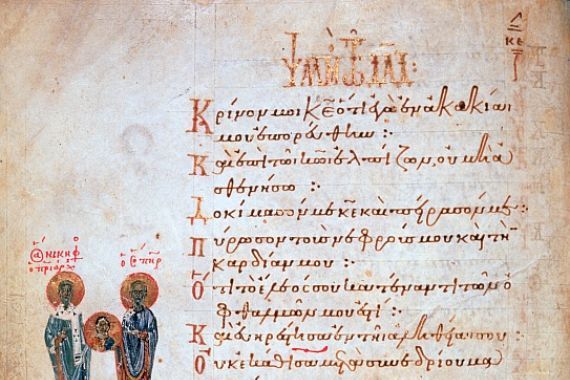 κε
Κρίνον μοι κε ὅτι ἐγὼ ἐν ἀκακίαι
μου ἐπορεύθην :
Καὶ ἐπὶ τῶ κω ἐλπίζων, οὐ μὴ ἀ
σθενήσω :
Δοκίμασόν με κε καὶ πείρασόν με :
Πύρωσον τοὺς νεφρούς μου καὶ τὴν
καρδίαν μου :
Ὅτι τὸ ἔλεός σου κατέναντι τῶν ὀ
φθαλμῶν μου ἐστί :
Καὶ εὐηρέστησα ἐν τῆι ἀληθεία σου :
Οὐκ ἐκάθισα μετὰ συνεδρίου μα
νικηφ